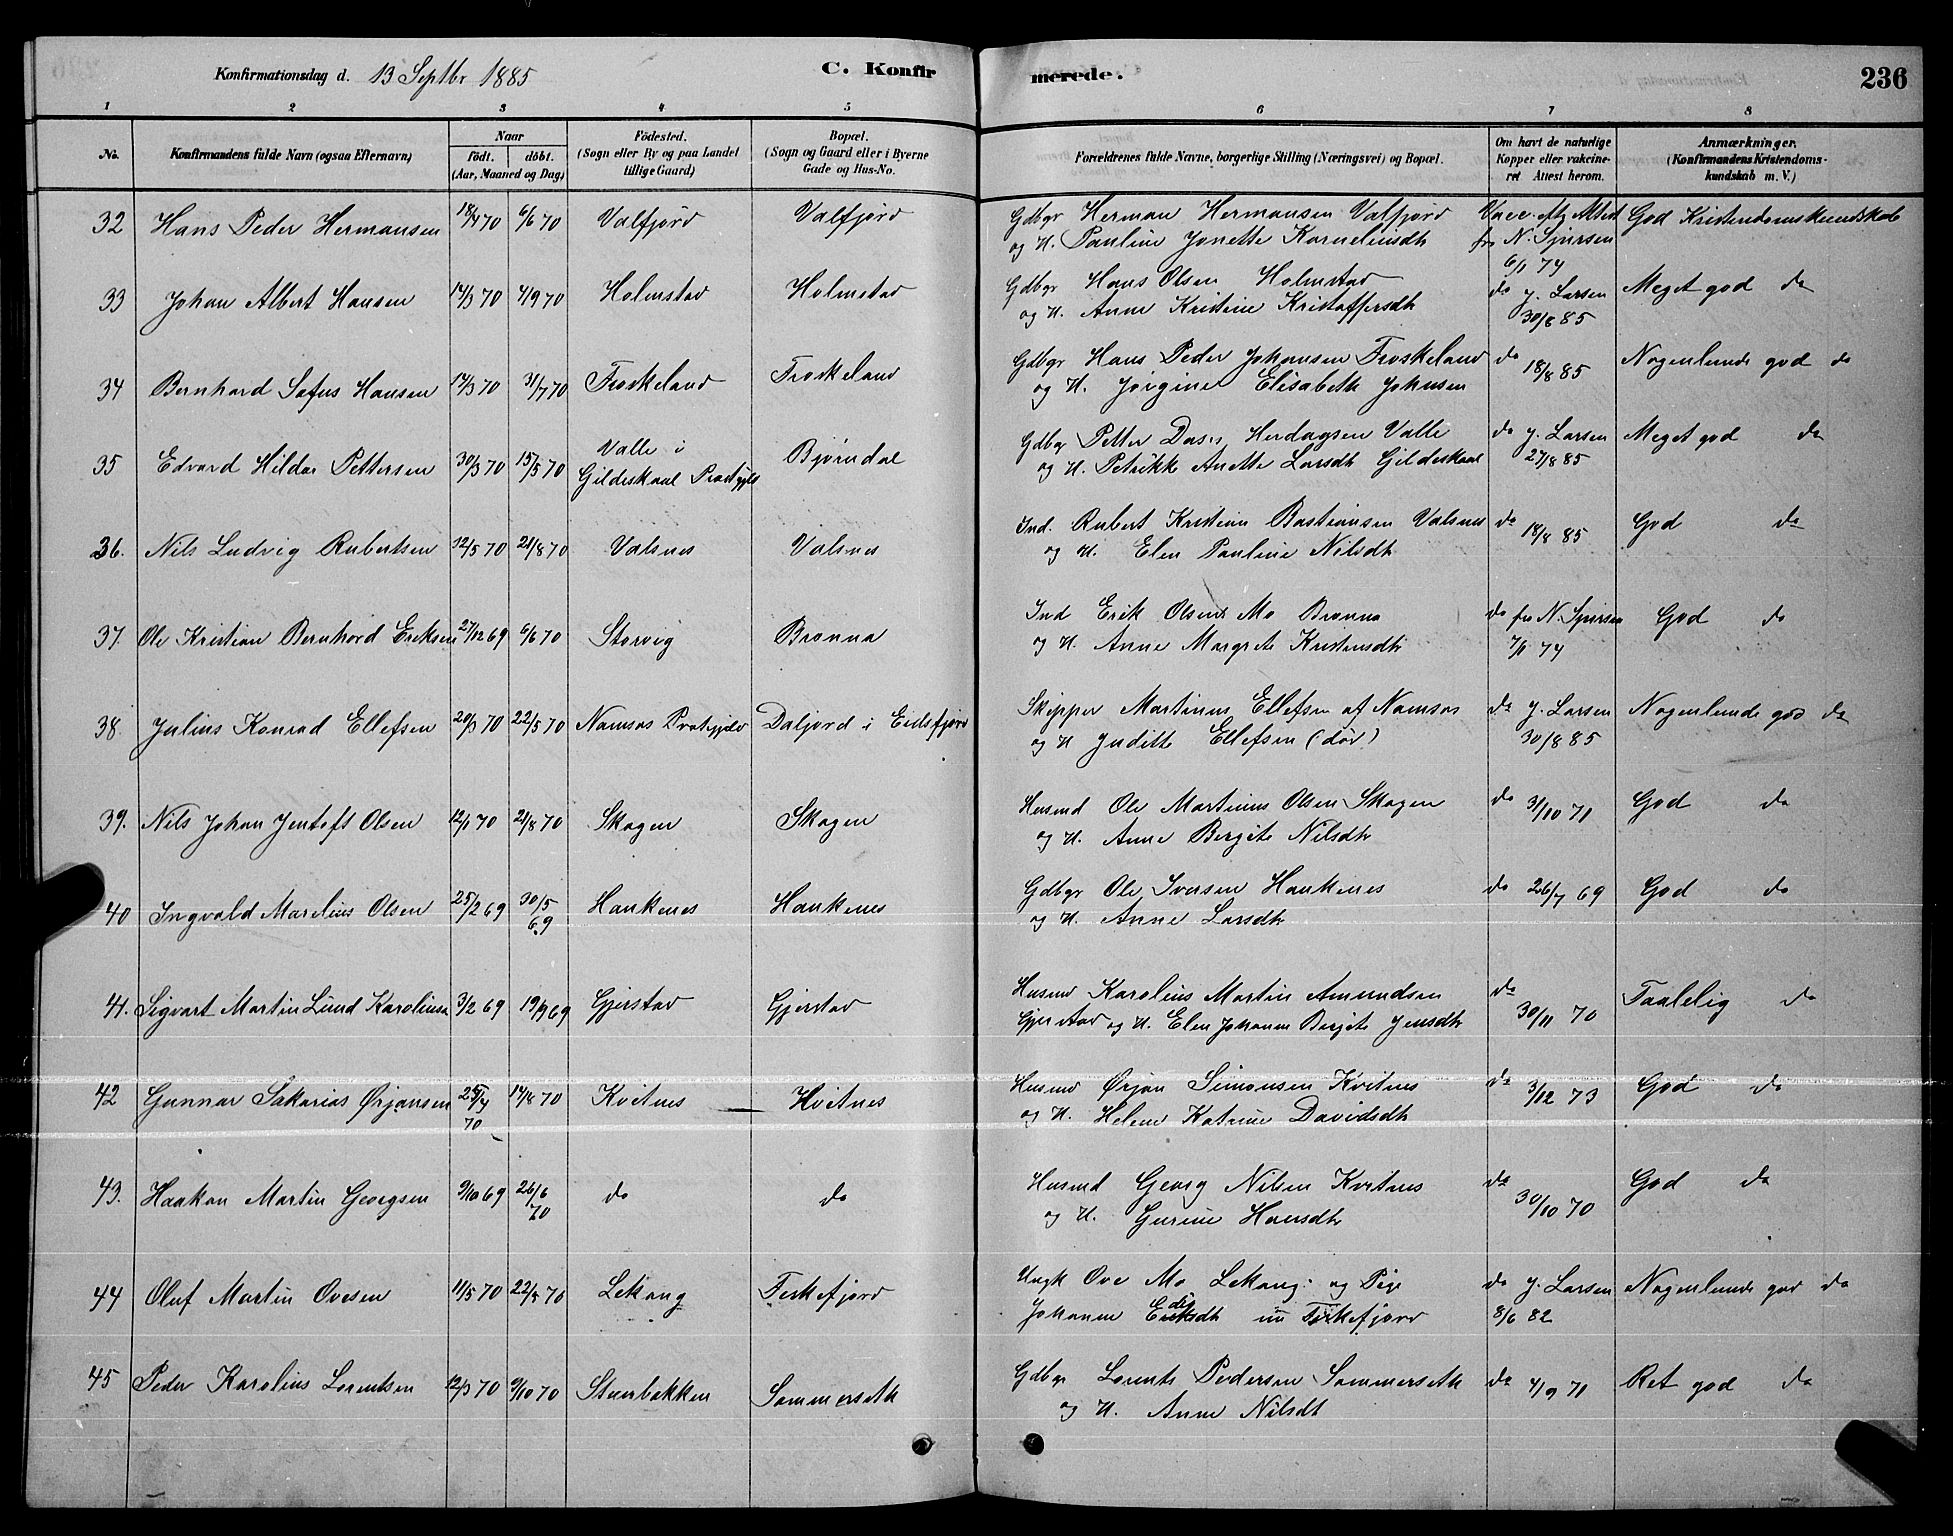 Konfirmationsdag d. 13 Septbr 1885
C. Konfirmerede.
236
1 2 3 4 5 6 7 8
No.
Konfirmandens fulde Navn (ogsaa Efternavn)
Naar
födt. döbt.
(Aar, Maaned og Dag)
Födested.
(Sogn eller By og paa Landet
tillige Gaard)
Bopæl.
(Sogn og Gaard eller i Byerne
Gade og Hus-No.
Forældrenes fulde Navne, borgerlige Stilling (Næringsvei) og Bopæl.
Om havt de naturlige
Kopper eller vakcine-
ret Attest herom.
Anmærkninger.
(Konfirmandens Kristendoms-
kundskab m. V.)
32 Hans Peder Hermansen 18/4 70 6/6 70 Valfjord Valfjord Gdbgr Herman Hermansen Valfjord Vacc. Attest God Kristendomskundskab
og H. Pauline Jonette Korneliusdtr fra N. Sjursen
6/1 74
33 Johan Albert Hansen 14/3 70 4/9 70 Holmstad Holmstad Gdbgr Hans Olsen Holmstad do J. Larsen Meget god do
og H. Anne Kristine Kristoffersdtr 30/8 85
34 Bernhard Sofus Hansen 14/3 70 31/7 70 Froskeland Froskeland Gdbgr Hans Peder Johansen Froskeland do 18/8 85 Nogenlunde god do
og H. Jørgine Elisabeth Johnsen
35 Edvard Hildor Pettersen 30/3 70 15/5 70 Valle i Bjørndal Gdbgr Petter Dass Herdagsen Valle do J. Larsen Meget god do
Gildeskaal Prestgjld og H. Petrikke Anette Larsdtr Gildeskaal 27/8 85
36. Nils Ludvig Rubertsen 12/5 70 21/8 70 Valsnes Valsnes Ind. Rubert Kristian Bastiansen Valsnes do 18/8 85 God do
og H. Elen Pauline Nilsdtr
37. Ole Kristian Bernhard Eriksen 27/12 69 6/6 70 Storvig Brønna Ind Erik Olsen Mo Brønna do fra N. Sjursen God do
og H. Anne Margrete Kristensdtr 7/1 74
38. Julius Konrad Ellefsen 20/3 70 22/5 70 Namsos Prstgjeld Daljord i Eidsfjord Skipper Martinus Ellefsen af Namsos do J. Larsen Nogenlunde god do
og H Juditte Ellefsen (død) 30/8 85
39. Nils Johan Jentoft Olsen 12/1 70 21/8 70 Skogen Skogen Husmd Ole Martinus Olsen Skogen do 3/10 71 God do
og H. Anne Bergite Nilsdtr
40 Ingvald Marelius Olsen 25/2 69 30/5 69 Haukenes Haukenes Gdbgr Ole Iversen Haukenes do 26/7 69 God do
og H. Anne Larsdtr
41. Sigvart Martin Lund Karoliusen 3/2 69 19/9 69 Gjerstad Gjerstad Husmd Karolius Martin Amundsen do 30/11 70 Taalelig do
Gjerstad og H. Elen Johanna Bergite Jensdtr
42 Gunnar Sakarias Ørjansen 25/4 70 14/8 70 Kvitnes Kvitnes Husmd Ørjan Simonsen Kvitnes do 3/12 73 God do
og H. Helene Katrine Davidsdtr
43. Haakon Martin Georgsen 9/10 69 26/6 70 do do Husmd Georg Nilsen Kvitnes do 30/10 70 God do
og H. Gurine Hansdtr
44 Oluf Martin Ovesen 11/5 70 22/5 70 Lekang Fiskefjord Ungk Ove Mo Lekang: og Pige do J. Larsen Nogenlunde god do
Johanna Eriksdtr nu Fiskefjord 8/6 82
45 Peder Karolius Lorentsen 12/3 70 9/10 70 Steinbakken Sommerseth Gdbgr Lorents Pedersen Sommerseth do 4/9 71 Ret god do
og H. Anne Nilsdt